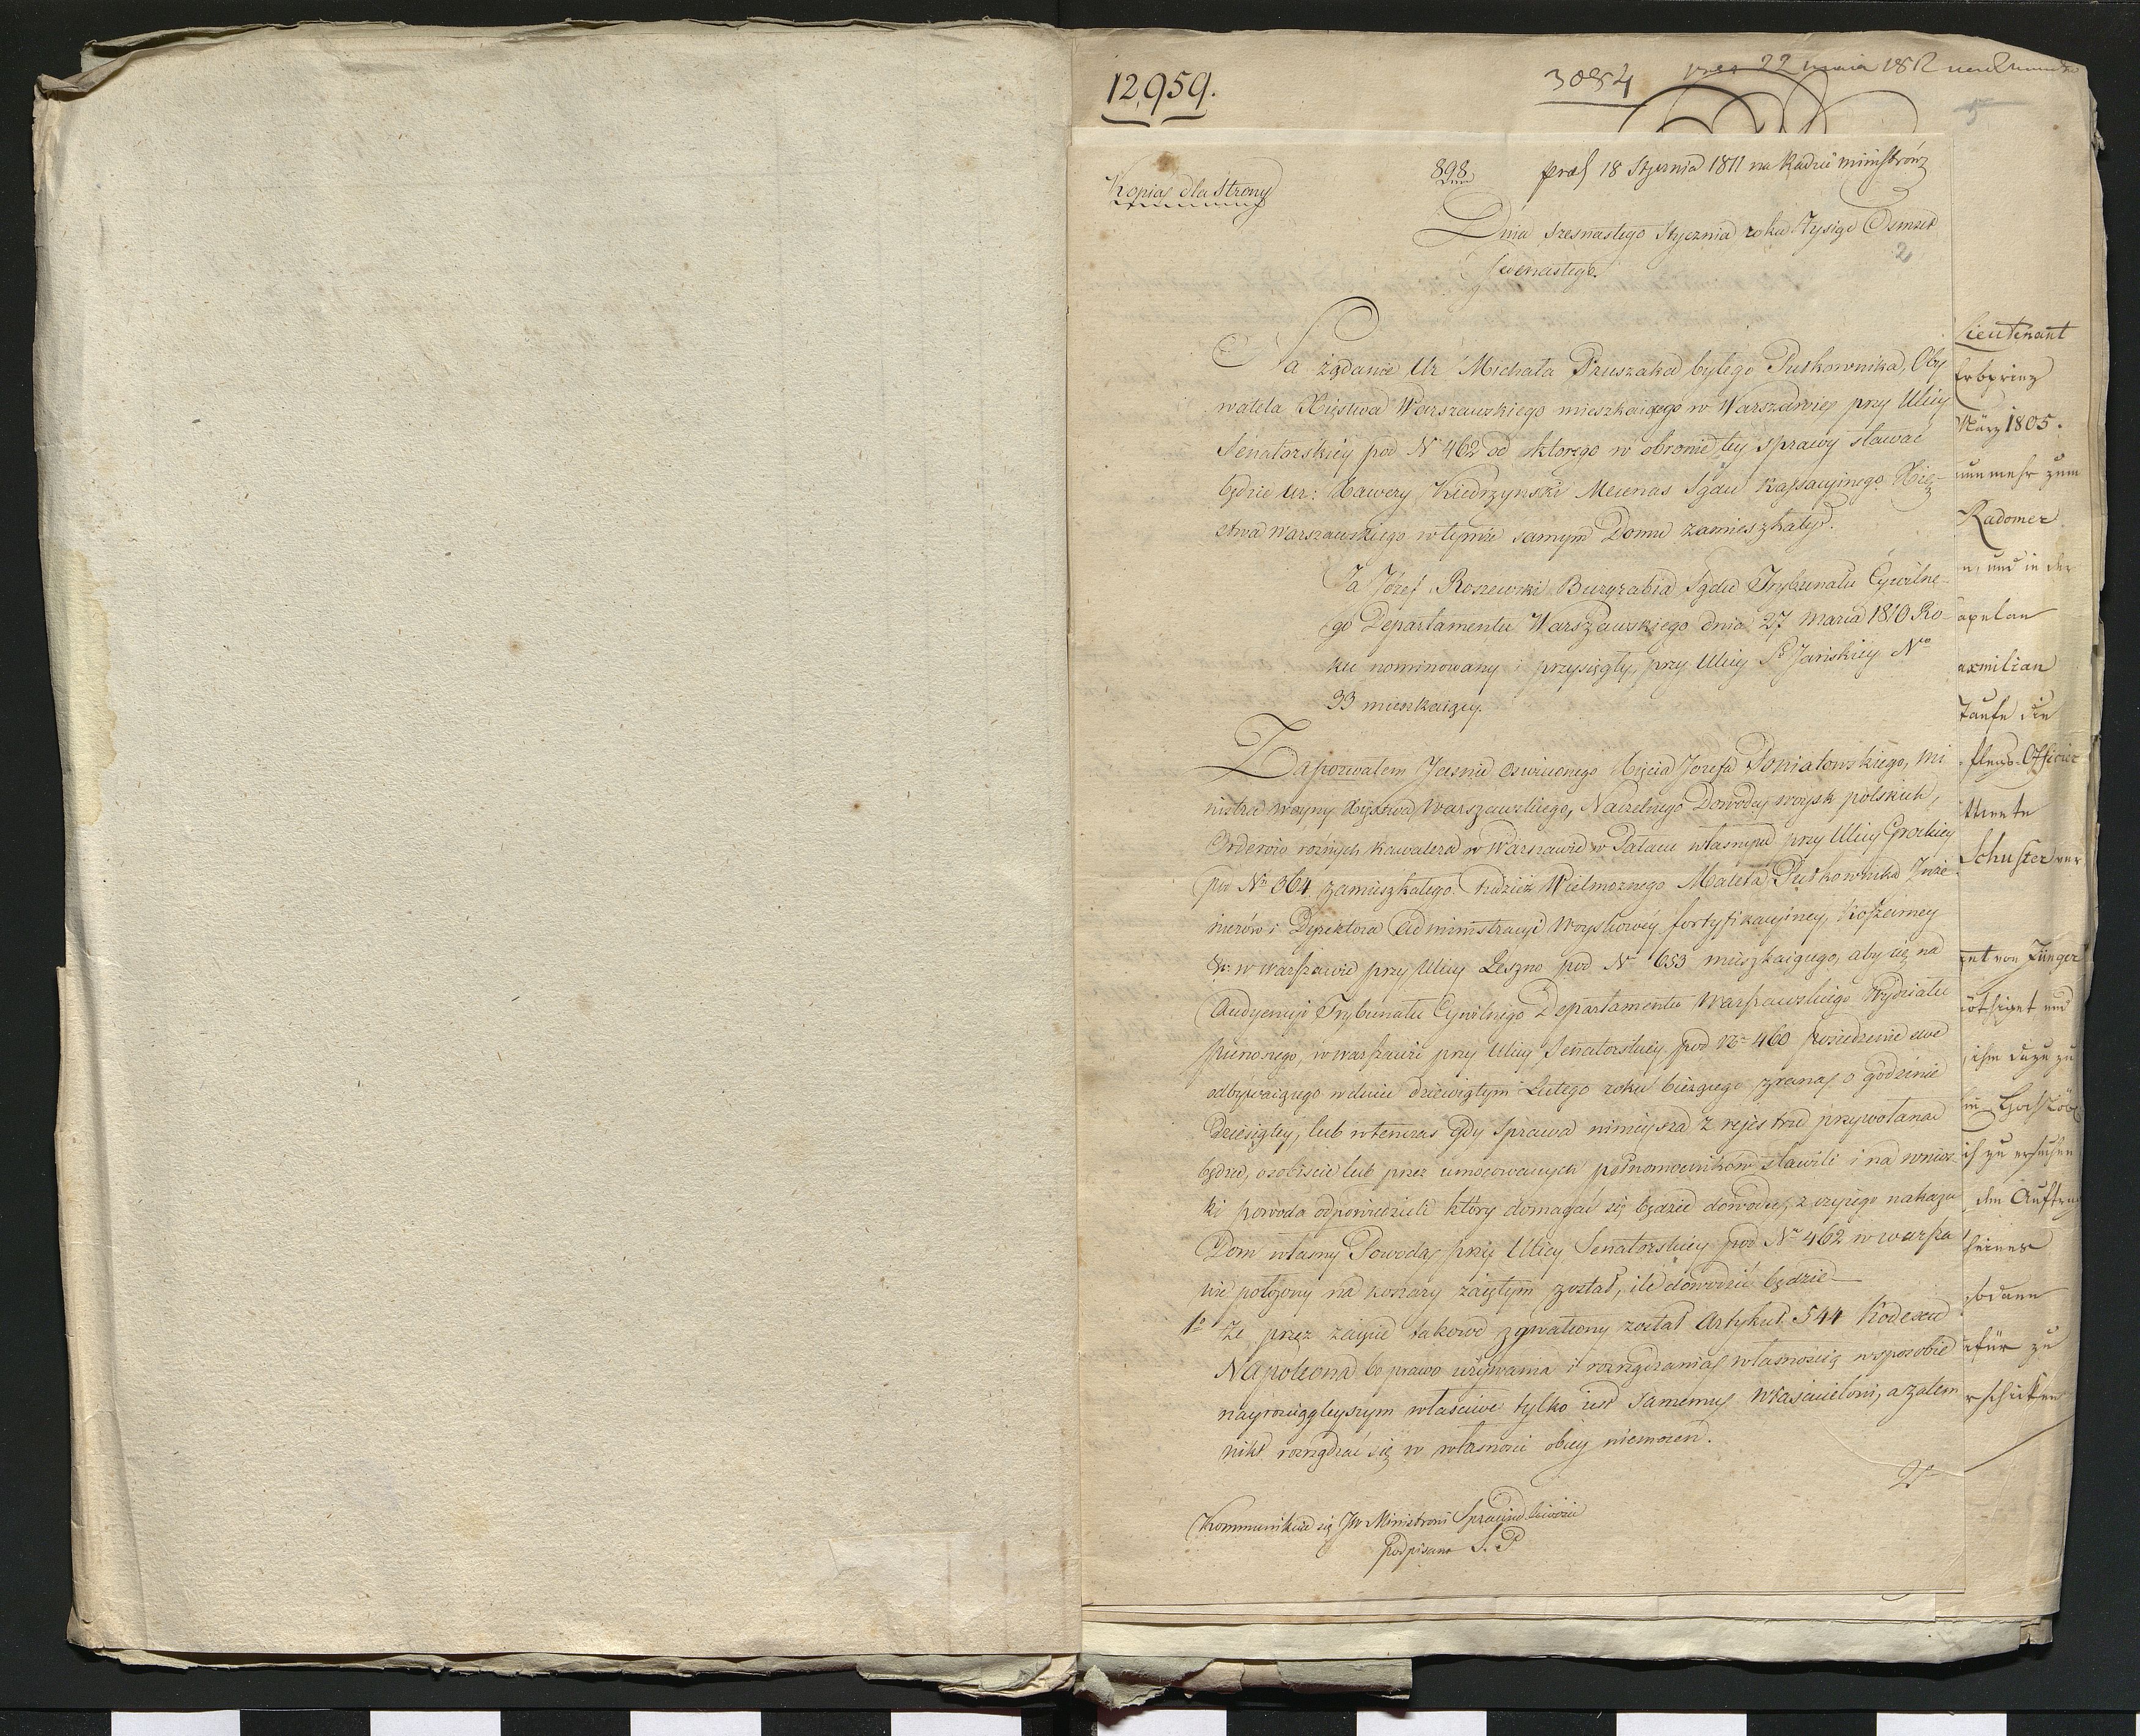 12,959.
3084
22 maia 1812
5
Kopia dla Strony
898
præs 18 Stycznia 1811 na Radzie ministrów
Dnia szesnastego Stycznia roku tysiąc Osmset
jedenastego.
2
Na żądanie Ur Michała Pruszaka byłego Pułkownika, Oby
watela Xięstwa Warszawskiego mieszkaiącego w Warszawie przy Ulicy
Senatorskiey pod N 462 od ktorego w obronie tey sprawy stawać
będzie Ur: Xawery Kiedrzynski Mecenas Sądu Kassacyinego Xię-
stwa Warszawskiego w tymże samym Domu zamieszkały.
Ja Józef Roszewski Burgrabia Sądu Trybunału Cywilne-
go Departamentu Warszawskiego dnia 27 Marca 1810 Ro-
ku nominowany i przysięgły, przy Ulicy St Jańskiey Nro
33 mieszkaiący.
Zapozwałem Jasnie Oswieconego Xięcia Jozefa Poniatowskiego, Mi
nistra woyny Xięstwa Warszawskiego, Naczelnego Dowodcę woysk polskich,
Orderow różnych kawalera w Warszawie w Pałacu własnym przy Ulicy Grodzkiey
pod Nr 364 zamieszkałego. tudzież Wielmożnego Maleta Pułkownika Inże
nierów i Dyrektora Administracyi Woyskowéy fortyfikacyiney, Koszarney
&c. w Warszawie przy Ulicy Leszno pod Nr 653 mieszkaiącego, aby się na
Audyencyi Trybunału Cywilnego Departamentu Warszawskiego Wydziału
pierwszego, w Warszawie przy Ulicy Senatorskiey pod Nr 460 posiedzenie swe
odbywaiącego w dniu dziewiątym Lutego roku bieżącego zrana o godzinie
dziesiątey, lub wtenczas gdy sprawa ninieysza z rejestru przywołana
będzie, osobiscie lub przez umocowanych pełnomocników stawili i na wnios-
ki powoda odpowiedzieli który domagać się będzie dowodu, z czyiego nakazu
Dom własny Powoda przy Ulicy Senatorskiey pod Nr 462 w Warsza
wie położony na koszary zaiętym został, ile dowodzić będzie
1o Że przez zaięcie takowe zgwałcony został Artykuł 544 Kodexu
Napoleona bo prawo używania i rozrządzania własnością w sposobie
nayrozciągleyszym własciwe tylko iest samemu własicielowi, a zatem
nikt rozrządzać się w własnosci obcey niemoże.
2o
Kommunikuie się JW Ministrowi Sprawiedliwości
podpisano S. P
Lieutenant
Erbprinz
März 1805.
nunmehr zum
Radomer
n, und in der
apelan
axmilian
Taufe die
Officier
Schuster
von Jünger
öthiget und
ihm dazu zu
zu ersuchen
den Auftrag
seines
sodann
afür zu
rschicken